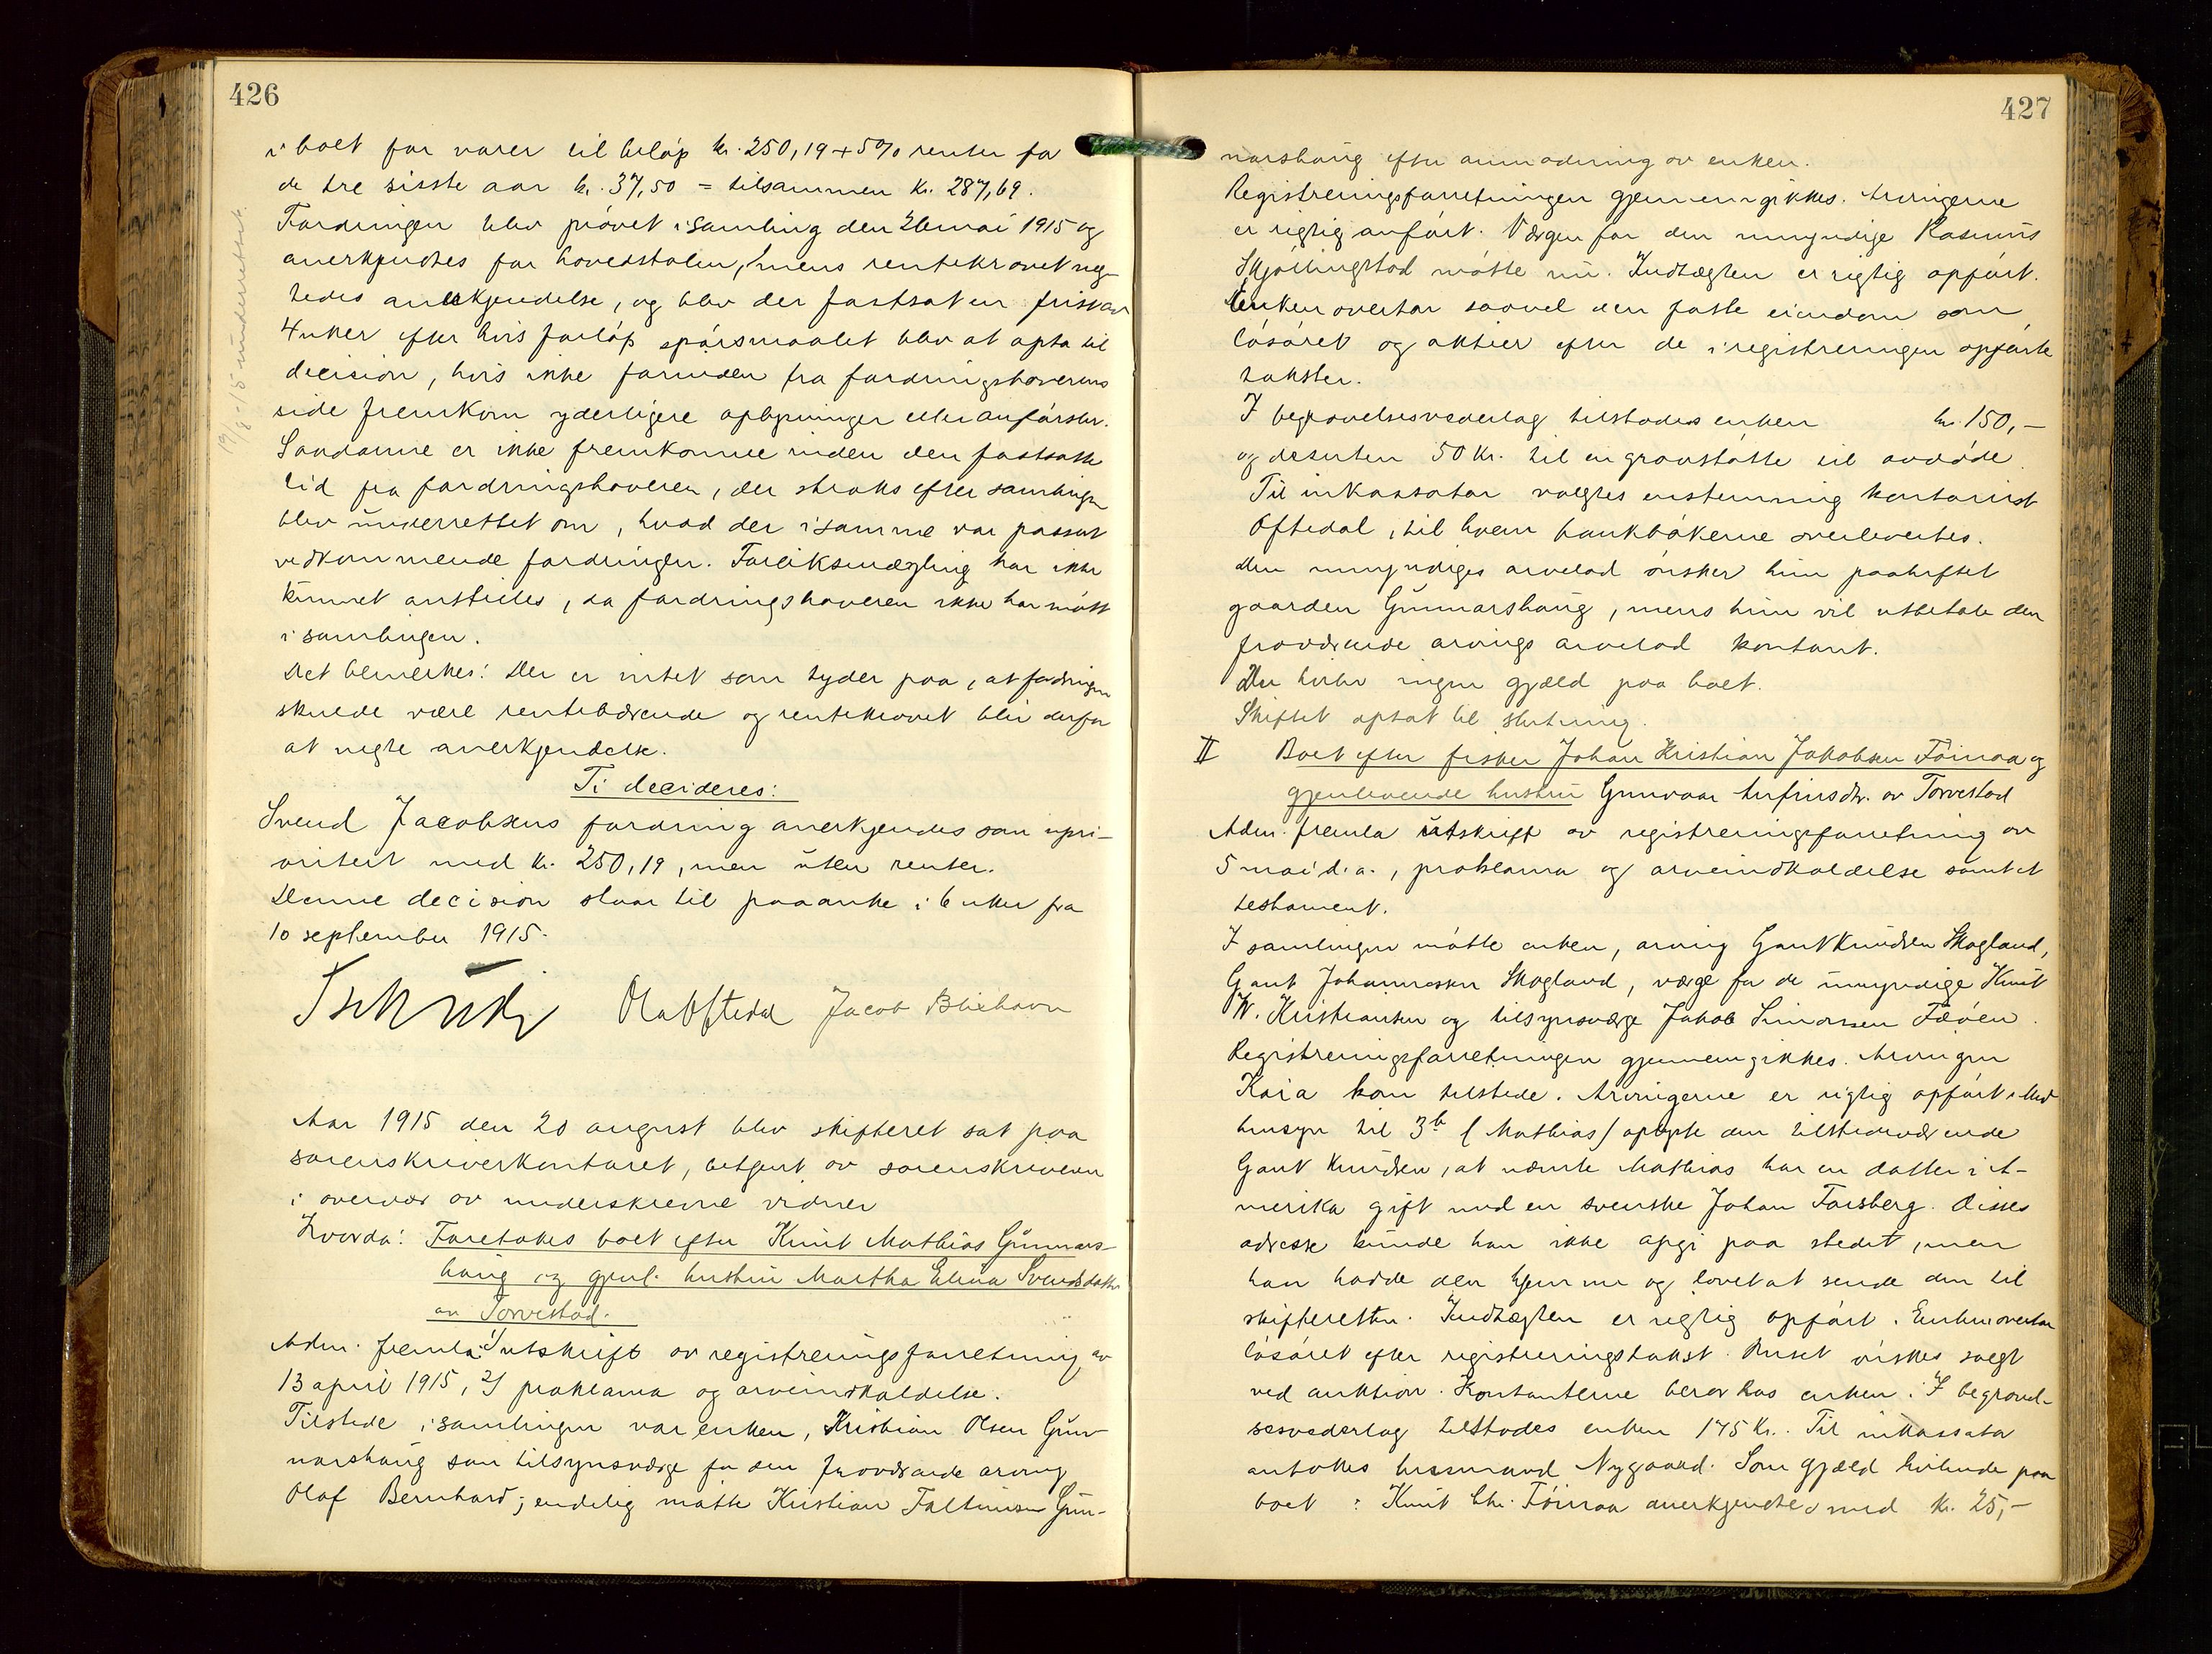 426
i boet for varer til beløp kr. 250,19 + 5% renter for
de tre sisste aar kr. 37,50 = tilsammen kr. 287,69.
Fordringen blev prøvet i samling den 26 mai 1915 og
anerkjendtes for hovedstolen, mens rentekravet neg-
tedes anerkjendelse, og blev der fastsat en frist av
4 uker efter hvis forløp spørsmaalet blev at opta til
decision, hvis ikke forinden fra fordringshaverens
side fremkom yderligere oplysninger eller anførsler.
Saadanne er ikke fremkomne inden den fastsatte
tid fra fordringshaveren, der straks efter samlingen
blev underrettet om, hvad der i samme var passert
vedkommende fordringen. Forliksmægling har ikke
kunnet anstilles, da fordringshaveren ikke har møtt
i samlingen.
Det bemerkes: Der er intet som tyder paa, at fordringen
skulde være rentebærende og rentekravet blir derfor
at negte anerkjendelse.
Ti decideres:
Svend Jacobsens fordring anerkjendes som upri-
oritert med kr. 250,19, men uten renter.
Denne decision staar til paaanke i 6 uker fra
10 september 1915.
Ola Oftedal Jacob Blikhavn
19/8-15 underrettet
Aar 1915 den 20 august blev skifteret sat paa
sorenskriverkontoret, betjent av sorenskriveren
i overvær av underskrevne vidner
Hvorda: Foretokes boet efter Knut Mathias Gunnars-
haug og gjenl. hustru Martha Elena Svendsdatter
av Torvestad.
Adm. fremla: 1/ utskrift av registreringsforretning av
13 april 1915, 2/ proklama og arveindkaldelse.
Tilstede i samlingen var enken, Kristian Olsen Gun-
narshaug som tilsynsværge for den fraværende arving
Olaf Bernhard; endelig møtte Kristian Faltinsen Gun-
427
narshaug efter anmodning av enken.
Registreringsforretningen gjennemgikkes. Arvingerne
er rigtig anført. Værgen for den umyndige Rasmus
Skjøllingstad møtte nu. Indtægten er rigtig opført.
Enken overtar saavel den faste eiendom som
løsøret og aktier efter de i registreringen opførte
takster.
I begravelsesvederlag tilstodes enken kr. 150,-
og desuten 50 kr. til en gravstøtte til avdøde.
Til inkassator valgtes enstemmig kontorist
Oftedal, til hvem bankbøkerne overlevertes.
Den umyndiges arvelod ønsker hun paaheftet
gaarden Gunnarshaug, mens hun vil utbetale den
fraværende arvings arvelod kontant.
Der hviler ingen gjæld paa boet.
Skiftet optat til slutning.
II Boet efter fisker Johan Kristian Jakobsen Føinaa og
gjenlevende hustru Gunvaar Arfinsdtr. av Torvestad
Adm. fremla utskrift av registreringsforretning av
5 mai d.a., proklama og arveindkaldelse samt et
testament.
I samlingen møtte enken, arving Gaut Knudsen Skogland,
Gaut Johannessen Skogland, værge for de umyndige Knut
W. Kristiansen og tilsynsværge Jakob Simonsen Fæøen.
Registreringsforretningen gjennemgikkes. Arvingen
Kaia kom tilstede. Arvingerne er rigtig opført. Med
hensyn til 3b (Mathias) oplyste den tilstedeværende
Gaut Knudsen, at nævnte Mathias har en datter i A-
merika gift med en svenske Johan Forsberg. Disses
adresse kunde han ikke opgi paa stedet, men
han hadde den hjemme og lovet at sende den til
skifteretten. Indtægten er rigtig opført. Enken overtar
løsøret efter registreringstakst. Huset ønskes solgt
ved auktion. Kontanterne beror hos enken. I begravel-
sesvederlag tilstodes enken 175 kr. Til inkassator
antokes lensmand Nygaard. Som gjæld hvilende paa
boet: Knut Chr. Føinaa anerkjendtes med kr. 25,-